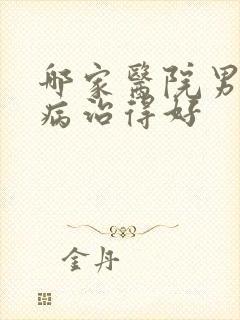 那家醫院男
病治得好
金丹